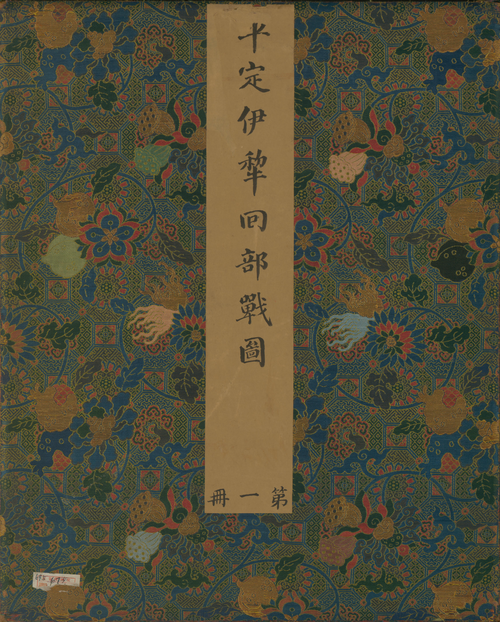 平定伊犂回部戰圖
第一冊